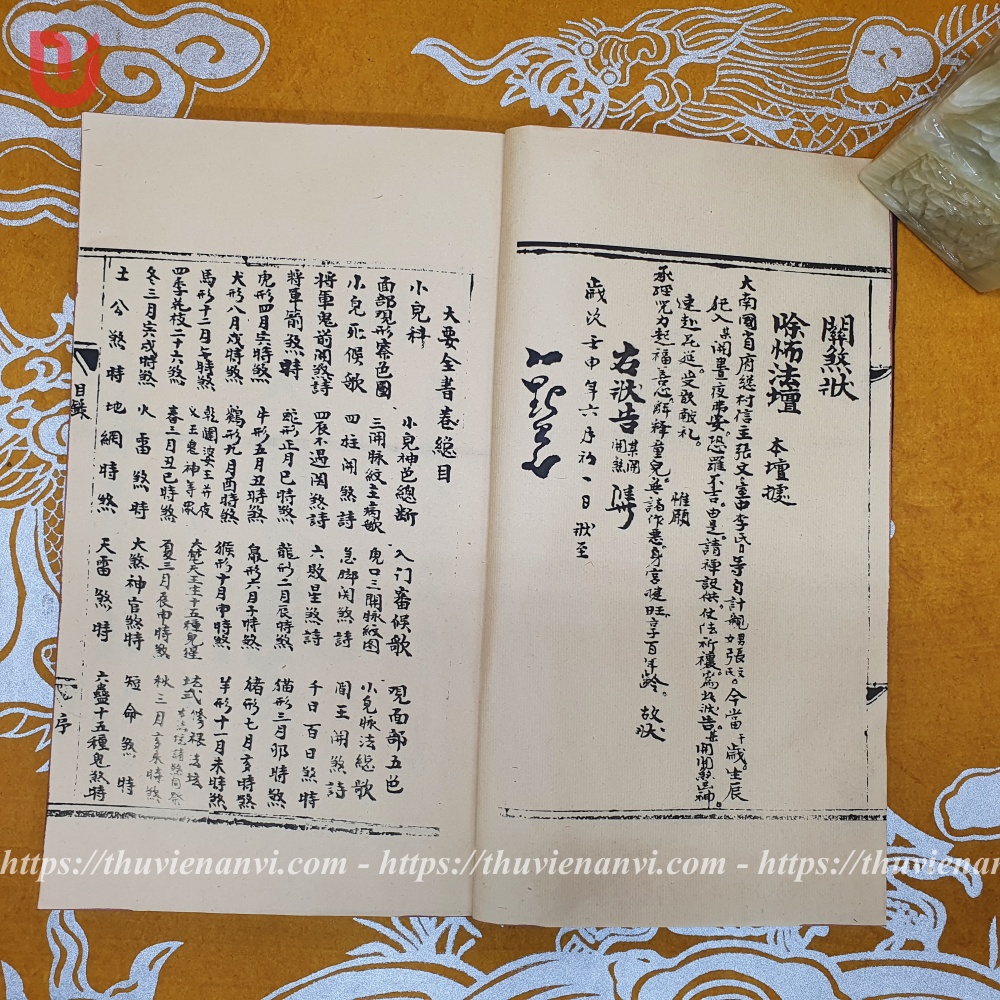 關煞狀
除怖法壇 本壇據
大南國省府總村信主張文 李氏 等 歲生辰
犯入某關晝夜弗安恐羅不吉由是請禪設供仗法祈禳為此狀告某關關煞 神
速赴 筵受茲献礼 惟願
承經咒力起福 心解釋童兒無諸作悪身宮健旺享百年齡故狀
右狀告某關關煞
歲次壬申年六月初一日狀至
大要全書卷總目
小兒科 小兒神色總斷 入门審候歌 观面部五色
面部观形察色圖 三関脉紋主病歌 虎口三関脉紋图 小兒脉法總歌
小兒死候歌 四柱関煞詩 急脚関煞詩 閻王関煞詩
將軍鬼前関煞詩 四辰不過関煞詩 六败星煞詩 千日百日煞時
將軍箭煞時 蛇形正月巳時煞 龍形二月辰時煞 猫形三月卯時煞
虎形四月寅時煞 牛形五月丑時煞 鼠形六月子時煞 猪形七月亥時煞
犬形八月戌時煞 鷄形九月酉時煞 猴形十月申時煞 羊形十一月未時煞
馬形十二月午時煞 乾闥婆王并夜叉王鬼神等眾 大梵天王十五種鬼 壇式修禄法坛
四季花枝二十六煞 春三月丑巳時煞 夏三月辰申時煞 秋三月亥未時煞
冬三月寅戌時煞 火雷煞時 大煞神官煞時 短命煞時
土公煞時 地網時煞 天雷煞時 六蠱十五種鬼煞時
目錄
序
https://thuvienanvi.com - https://thuvienanvi.com - https://thuvienanvi